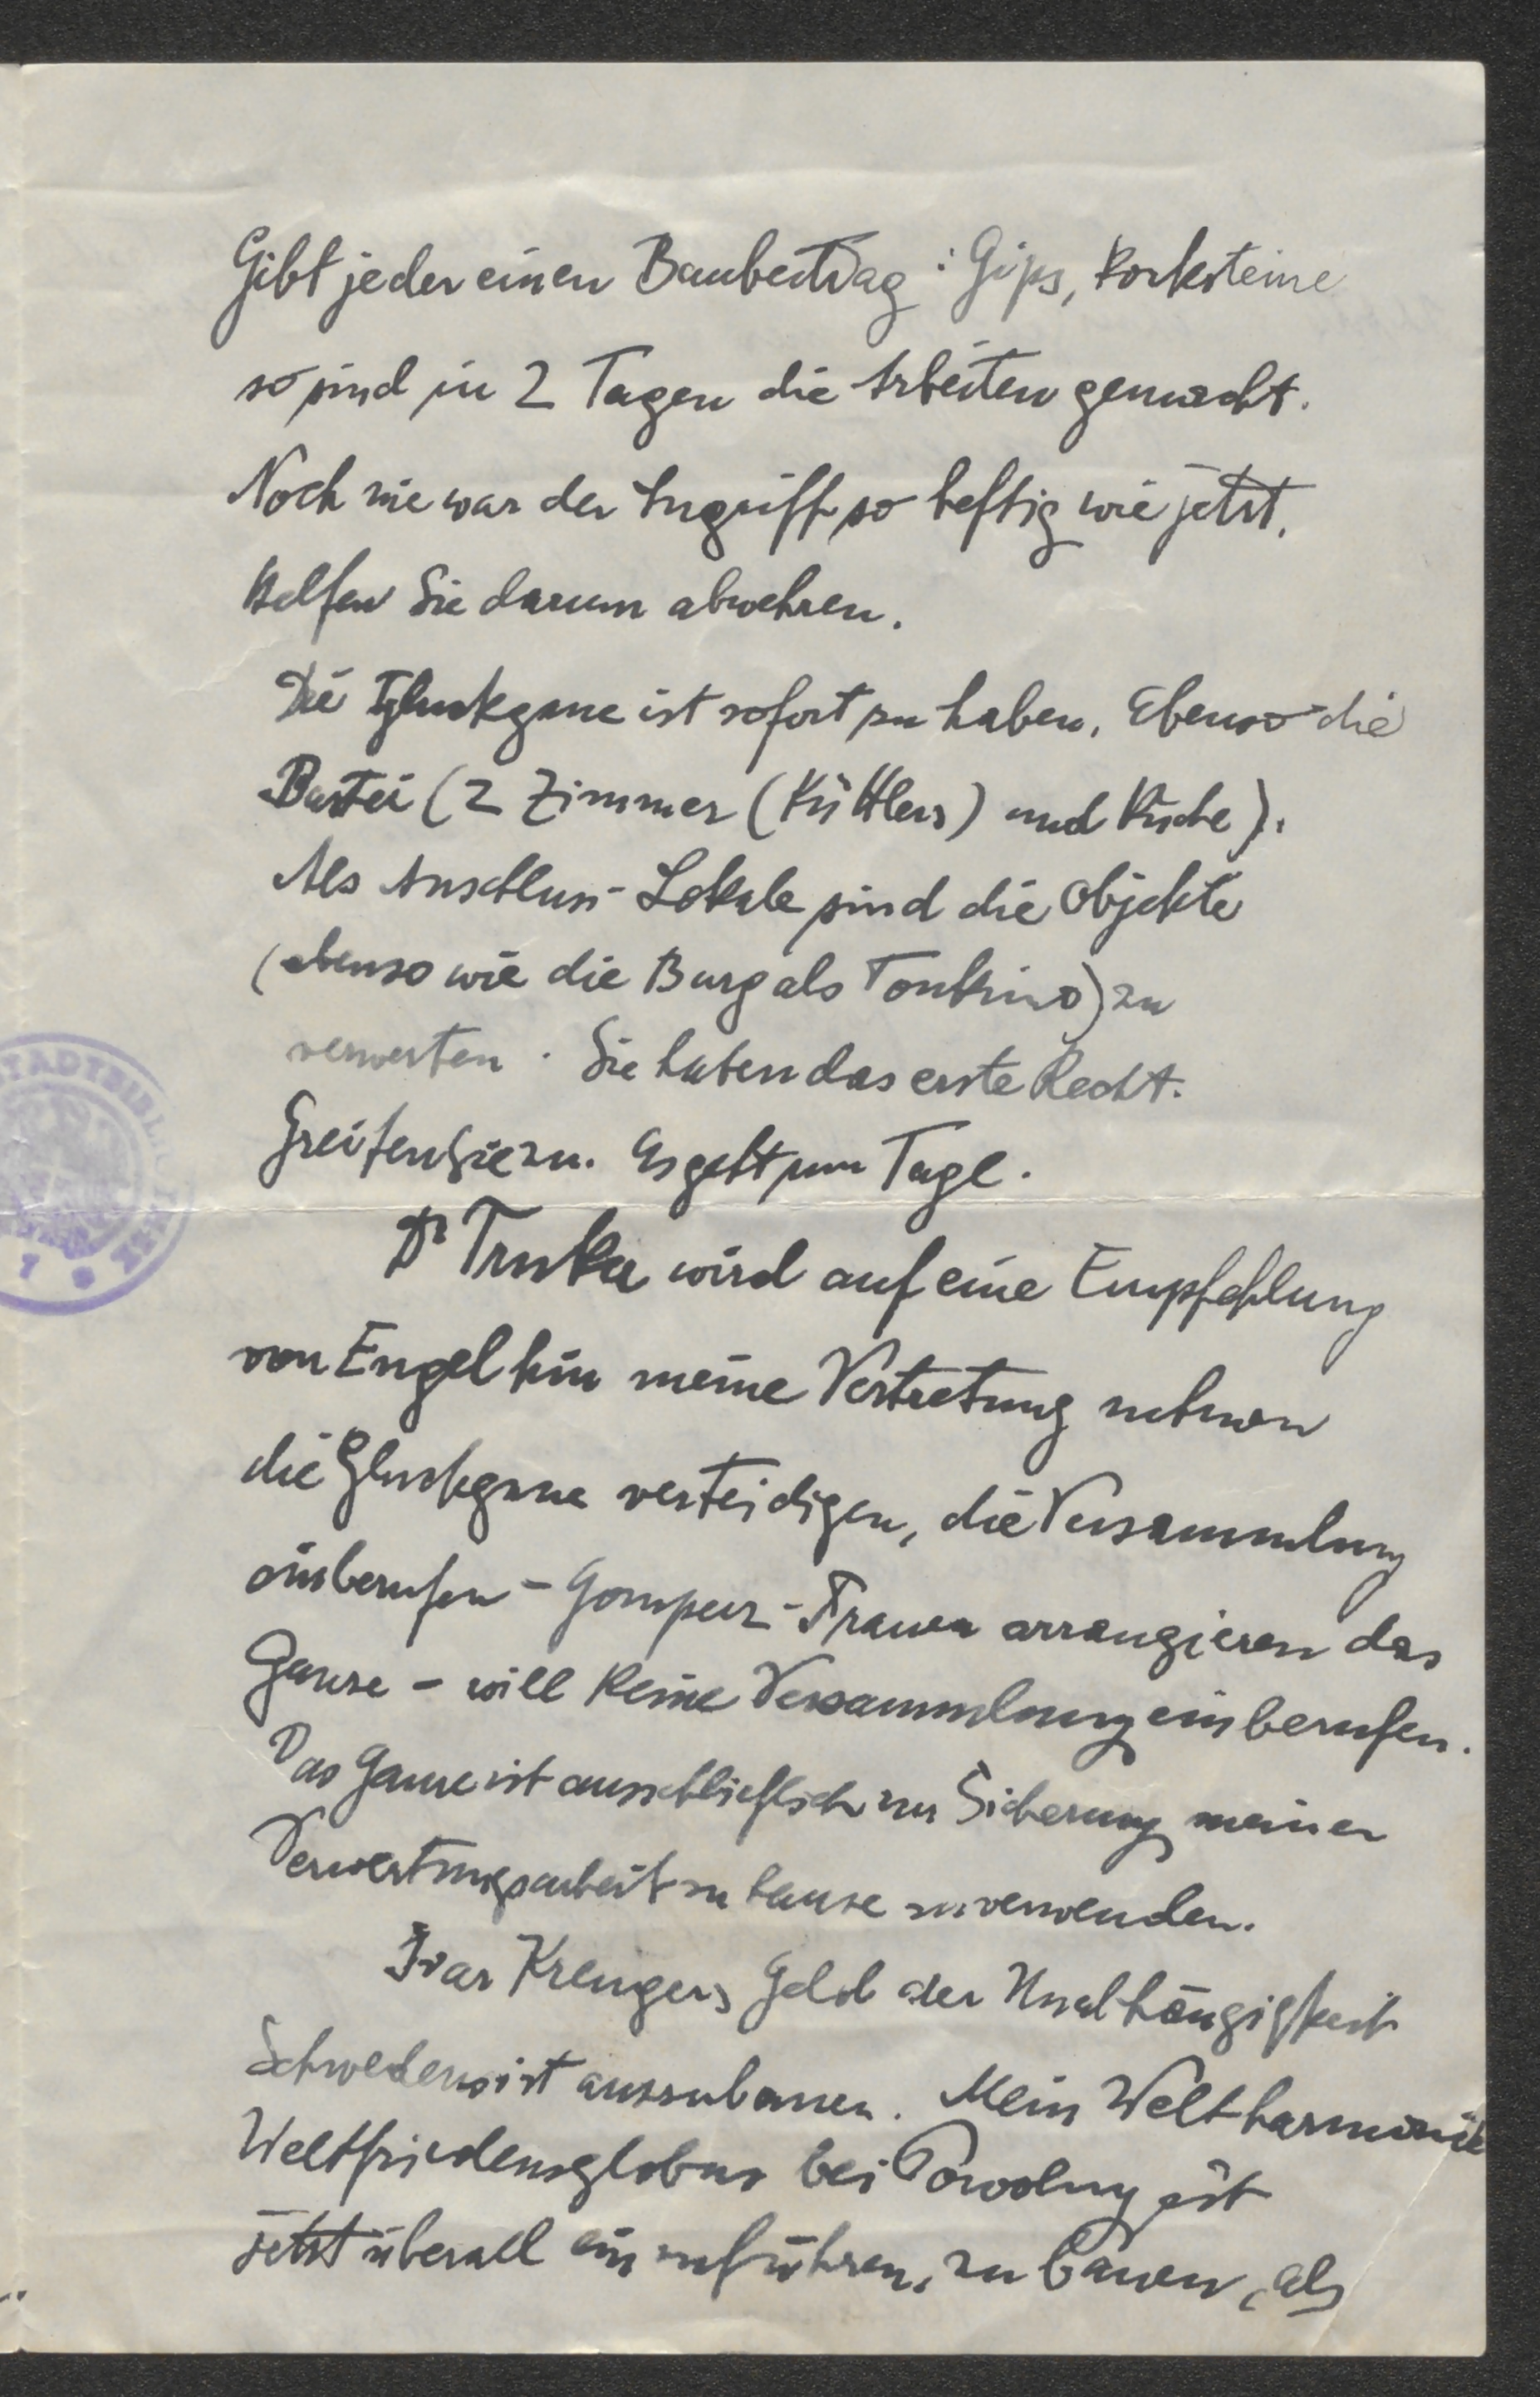 Gibt jeder einen Baubeitrag: Gips, Korksteine
so sind in 2 Tagen die Arbeiten gemacht.
Noch nie war der Angriff so heftig wie jetzt.
Helfen Sie darum abwehren.
Die Gluckgasse ist sofort zu haben. Ebenso die
Bastei (2 Zimmer (Küttlers) und Küche).
Als Anschluss-Lokale sind die Objekte
(ebenso wie die Burg als Tonkino) zu
verwerten. Sie haben das erste Recht.
Greifen Sie zu. Es geht um Tage.
Dr Truka wird auf eine Empfehlung
von Engel hin meine Vertretung nehmen
die Gluckgasse verteidigen, die Versammlung
einberufen - Gomperz-Frauen arrangieren das
Ganze - will keine Versammlung einberufen.
Das Ganze ist ausschließlich zur Sicherung meiner
Verwertungsarbeit zu hause zu verwenden.
Ivar Kreugers Geld der Unabhängigkeit
Schwedens ist auszubauen. Mein Weltharmonie
Weltfriedensglobus bei Powolny ist
jetzt überall einzuführen, zu bauen, als
STADTBIBL